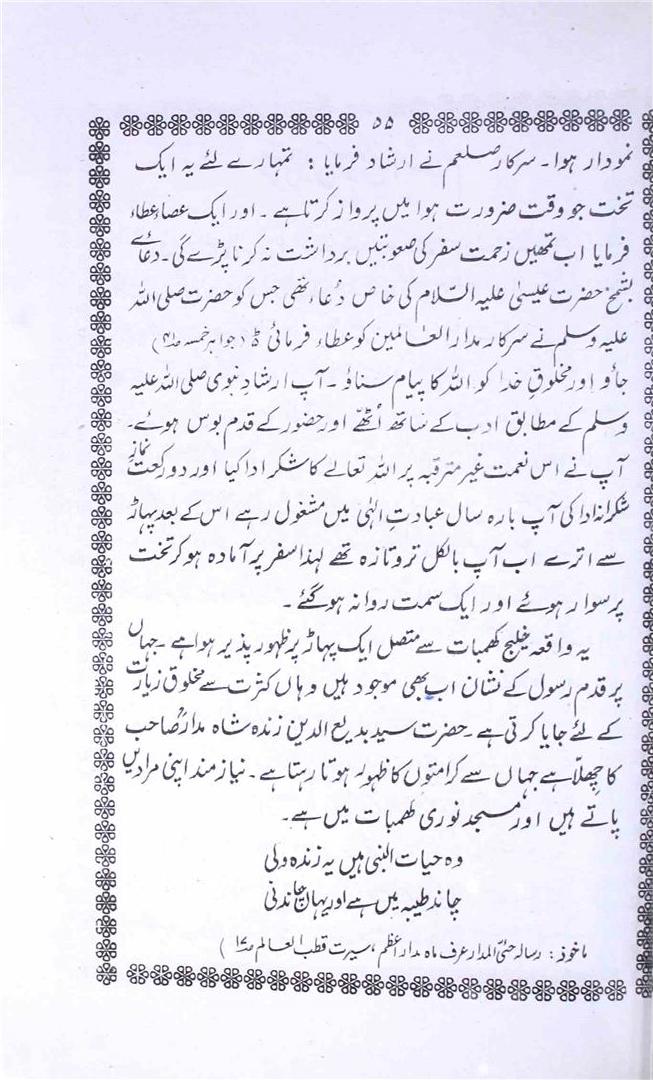 ۵۵
نمودار ہوا۔ سرکار صلعم نے ارشاد فرمایا : تمہارے لئے یہ ایک
تخت جو وقت ضرورت ہوا میں پرواز کرتا ہے ۔ اور ایک عصا عطاء
فرمایا اب تمھیں زحمت سفر کی صعوبتیں برداشت نہ کرنا پڑے گی۔ دعائے
بشمخ حضرت عیسیٰ علیہ السّلام کی خاص دُعاء تھی جس کو حضرت صلی اللہ
علیہ وسلم نے سرکار مدار العالمین کو عطاء فرمائی ( جواہر خمسہ
جاؤ اور مخلوقِ خدا کو اللہ کا پیام سناؤ ۔ آپ ارشادِ نبوی صلی اللہ علیہ
وسلم کے مطابق ادب کے ساتھ اُٹھے اور حضور کے قدم بوس ہوئے۔
آپ نے اس نعمت غیر مترقبہ پر اللہ تعالےٰ کا شکر ادا کیا اور دو رکعت نماز
شکرانہ ادا کی آپ بارہ سال عبادتِ الٰہی میں مشغول رہے اس کے بعد پہاڑ
سے اترے اب آپ بالکل تروتازہ تھے لہذا سفر پر آمادہ ہو کر تخت
پر سوار ہوئے اور ایک سمت روانہ ہو گئے ۔
یہ واقعہ خلیج کھمبات سے متصل ایک پہاڑ پر ظہور پذیر ہوا ہے ۔ جہاں
پر قدم رسول کے نشان اب بھی موجود ہیں وہاں کثرت سے مخلوق زیارت
کے لئے جایا کرتی ہے ۔ حضرت سید بدیع الدین زندہ شاہ مدار صاحب
کا چھلّا ہے جہاں سے کرامتوں کا ظہور ہوتا رہتا ہے ۔ نیاز مند اپنی مرادیں
پاتے ہیں اور مسجد نوری کھمبات میں ہے۔
وہ حیات النبی ہیں یہ زندہ ولی
چاند طیبہ میں ہے اور یہاں چاندنی
ماخوذ : رسالہ حبّ المدار عرف ماہ مدار اعظم ، سیرت قطب العالم )